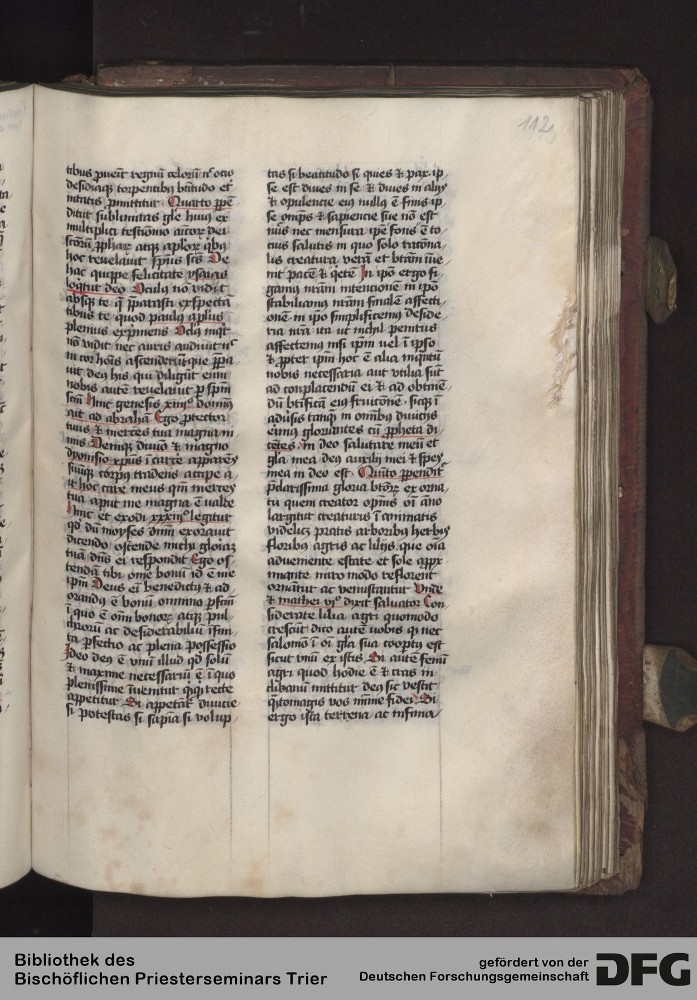 112
tibus ꝓueit regnū celoꝝ nᵉ ocio
desidiaqꝫ torpentibꝰ btītudo et̾
nitatis ꝓmittitur Quarto ꝓpē
ditur sublimitas gle huiꝰ ex
multiplici testīonio auctoꝝ dei
scōrū ꝓphaꝝ atqꝫ aploꝝ qbꝰ
hoc reuelauit spūs scūs De
hac quippe felicitate ysaias
loqitur deo Oculꝰ nō vidit
absqꝫ te q̄ ꝑparasti exspecta
tibus te quod paulꝰ aplus
plenius exprimens Oclꝰ inqt
nō vidit nec auris audiuit nᶜ
in cor hoīs ascenderūt que ꝓpa
uit deꝰ his qui diligūt eum
nobis autē reuelauit ꝑ spm̄
scm̄ Hinc genesis xvᵒ dominꝰ
ait ad abrahā Ego ꝓtector
tuus et merces tua magna ni
mis Deniqꝫ diuio et magno
dyonisio xp̄us ī carce appareꝰ
suuqꝫ corpꝰ tradens accipe a
it hoc care meus qm̄ merceꝰ
tua aput me magna ē valde
Hinc et exodi xxxiiᵒ legitur
qd̓ dū moyses dnm̄ exorauit
dicendo ostende michi gloriaꝫ
tuā dn̄s ei respondit Ego os
tendā tibi omē bonū id ē me
ipm̄ Deus ei benedictꝰ et ad
orandꝰ ē bonū omnino ꝑfcm̄
ī quo ē om̄ bonoꝝ atqꝫ pul
chrorū ac desiderabiliū īfini
ta ꝑfectio ac plena possessio
Ideo deꝰ ē vnū illud qd̓ solū
et maxime necessariū ē ī quo
plenissime īuenitur qcqd recte
appetitur Si appetāt̄ diuicie
si potestas si sapīa si volup
tas si beatitudo si quies et pax ip
se est diues in se et diues in aliꝰ
et opulencie eiꝰ nullꝰ ē finis ip
se omps et sapiencie sue nō est
nūs nec mensura ipe fons ē to
cius salutis in quo solo raciona
lis creatura verā et btām īue
nit pacē et qetē In ipo ergo fi
gamꝰ nrām intencionē in ipo
stabiliamꝰ nrām finalē affecti
onē in ipo simplificemꝰ deside
ria nrā ita ut nichil penitus
affectemꝰ nisi ipm̄ vel ī ipso
et ꝓpter ipm̄ hoc ē alia inqntū
nobis necessaria aut vtilia sūt
ad conplacendū ei et ad obtinē
dū btīficā eiꝰ fruicionē sicqꝫ ī
aduīsis tanqꝫ in omībꝰ diuiciis
erimꝰ gloriantes cū ꝓpheta di
cetes In deo salutare meū et
gla mea deꝰ auxilij mei et spes
mea in deo est Quito ꝓpendit̄
pclarissima gloria btōꝝ ex orna
tu quem creator opims oī āno
largitur creaturis ī animatis
videlicꝫ pratis arboribꝰ herbis
floribꝰ agris ac lilijs que oīa
adueniente estate et sole appx
imante maxo modo reflorent
ornātur ac venustantur Vnde
et mathei vjᵒ dixit saluator Con
siderate lilia agri quomodo
crescūt dico autē uobis qꝛ nec
salomō ī oī gla sua coopts est
sicut vnū ex istis Si autē fenū
agri quod hodie ē et cras in
clibanū mittitur deꝰ sic vestit
qntomagis vos īnīme fidei Si
ergo ista terrena ac infima
Bibliothek des
Bischöflichen Priesterseminars Trier
gefördert von der
Deutschen Forschungsgemeinschaft
DFG